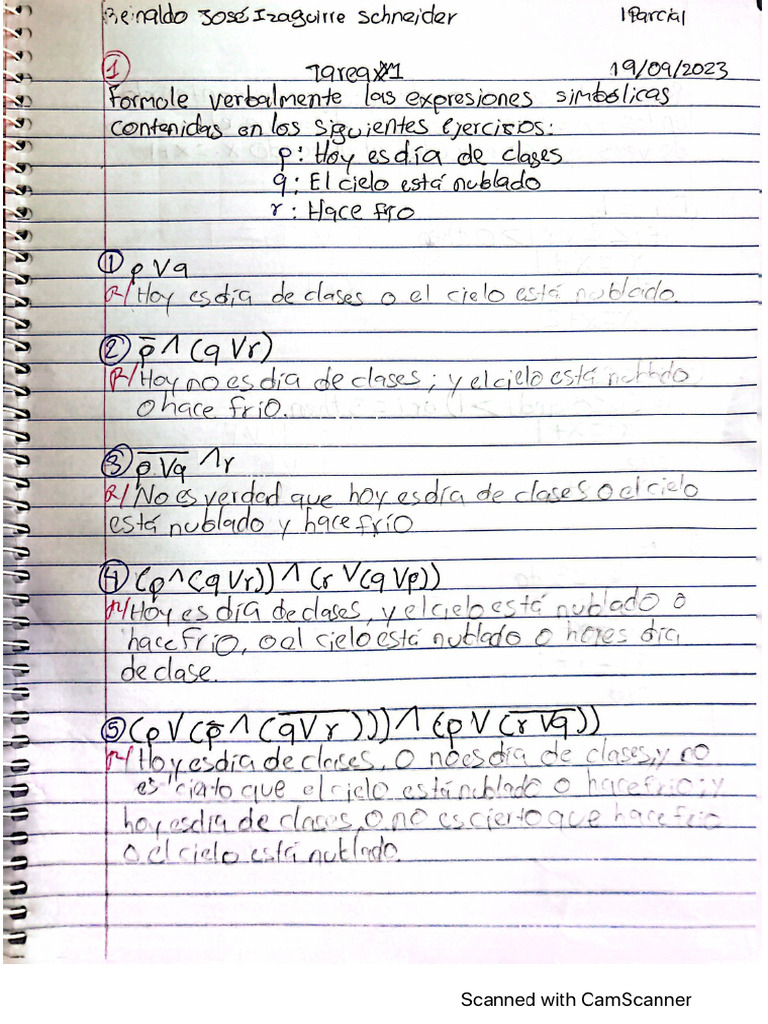 Reinaldo José Izaguirre Schneider IParcial
① Tarea #1 19/09/2023
Formule verbalmente las expresiones simbólicas
contenidas en los siguientes ejercicios:
p: Hoy es día de clases
q: El cielo está nublado
r: Hace frío
① p V q
R/ Hoy es día de clases o el cielo está nublado.
② p̅ ∧ (q V r)
R/ Hoy no es día de clases; y el cielo está nublado
o hace frío.
③ p̅ ̅V̅ ̅q̅ ∧ r
R/ No es verdad que hoy es día de clases o el cielo
está nublado y hace frío
④ (p ∧ (q V r)) ∧ (r V (q V p))
R/ Hoy es día de clases, y el cielo está nublado o
hace frío, o el cielo está nublado o es día
de clase.
⑤ (p V (p̅ ∧ (q̅ ̅V̅ ̅r̅))) ∧ (p V (r̅ ̅V̅ ̅q̅))
R/ Hoy es día de clases, o no es día de clases, y no
es cierto que el cielo está nublado o hace frío; y
hoy es día de clases, o no es cierto que hace frio
o el cielo está nublado.
Scanned with CamScanner